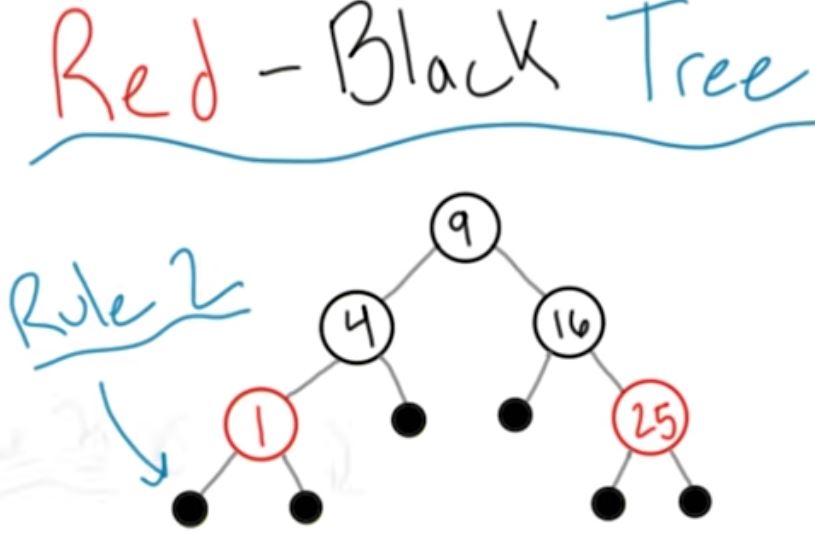 Red - Black Tree
9
Rule 2
4 16
1 25